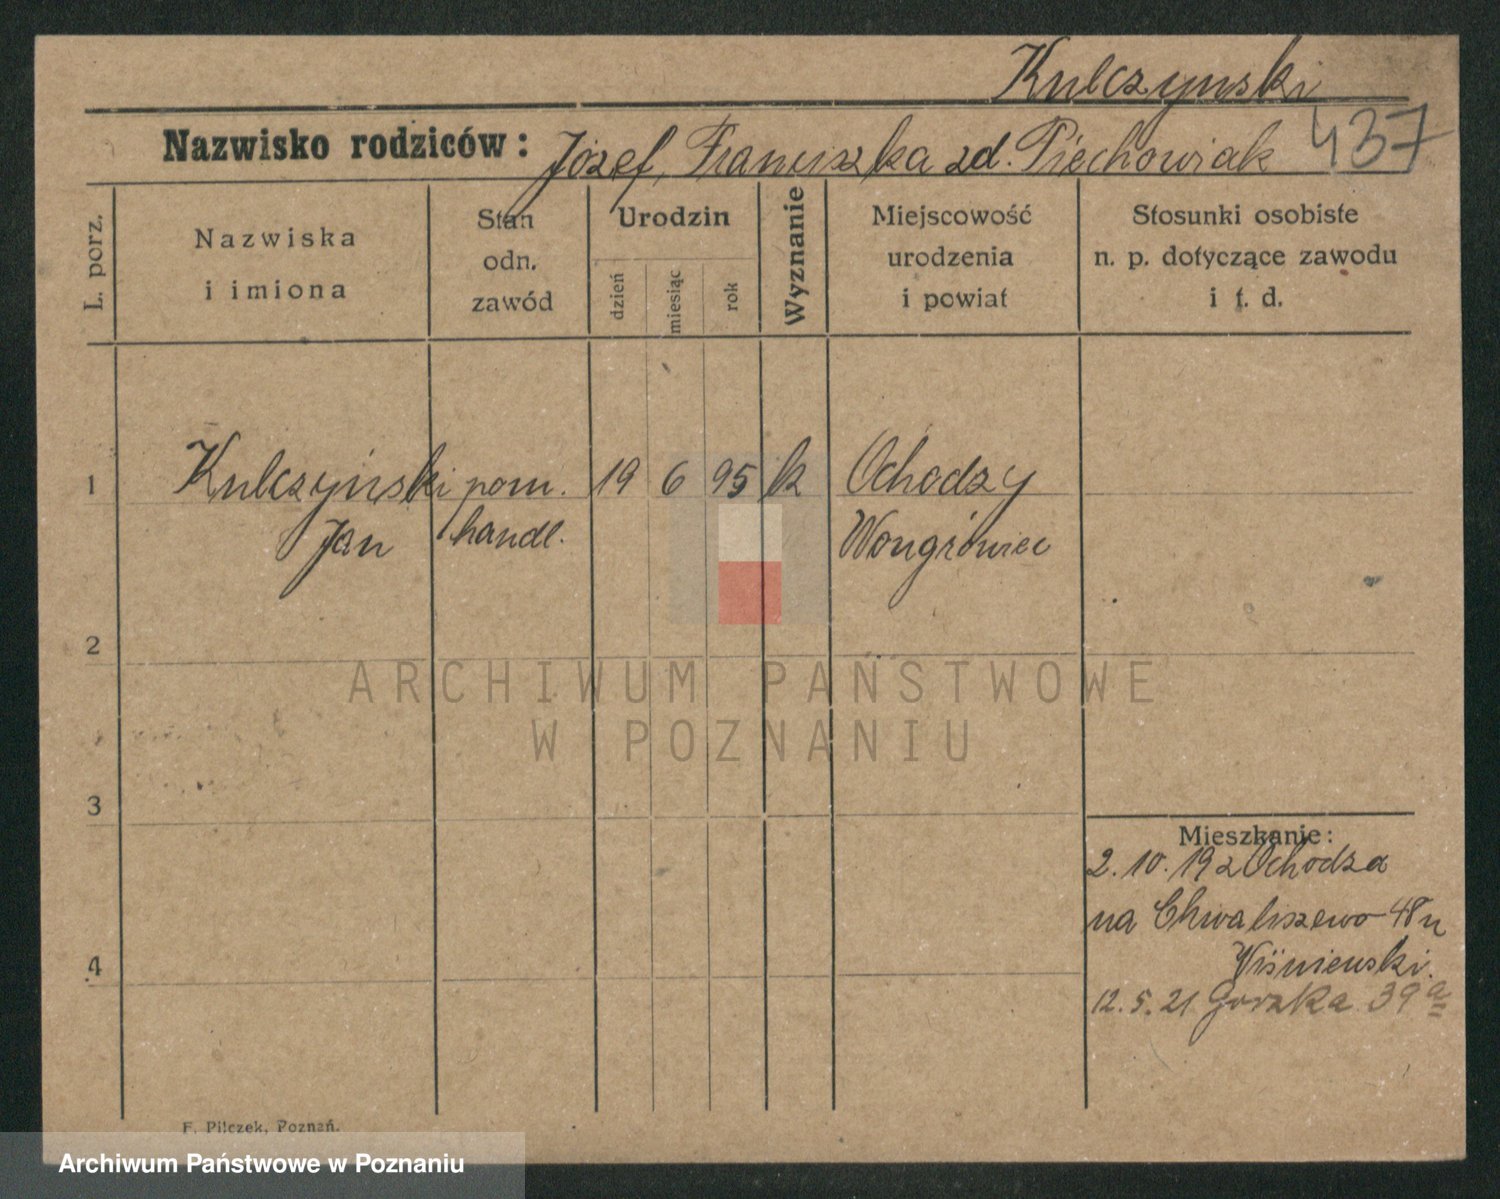 Kulczynski
Nazwisko rodziców: Józef, Franciszka zd. Piechowiak 437
L. porz.
Nazwiska
i imiona
Stan
odn.
zawód
Urodzin
dzień
miesiąc
rok
Wyznanie
Miejscowość
urodzenia
i powiat
Stosunki osobiste
n. p. dotyczące zawodu
i t. d.
1 Kulczyński pom. 19 6 95 k Ochodzy
Jan handl. Wongrówiec
2
ARCHIWUM PAŃSTWOWE
W POZNANIU
3
Mieszkanie:
2. 10. 19 z Ochodza
na Chwaliszewo 48 u
Wiśniewski.
4
12. 5. 21 Gorzka 39 a
F. Pilczek, Poznań.
Archiwum Państwowe w Poznaniu